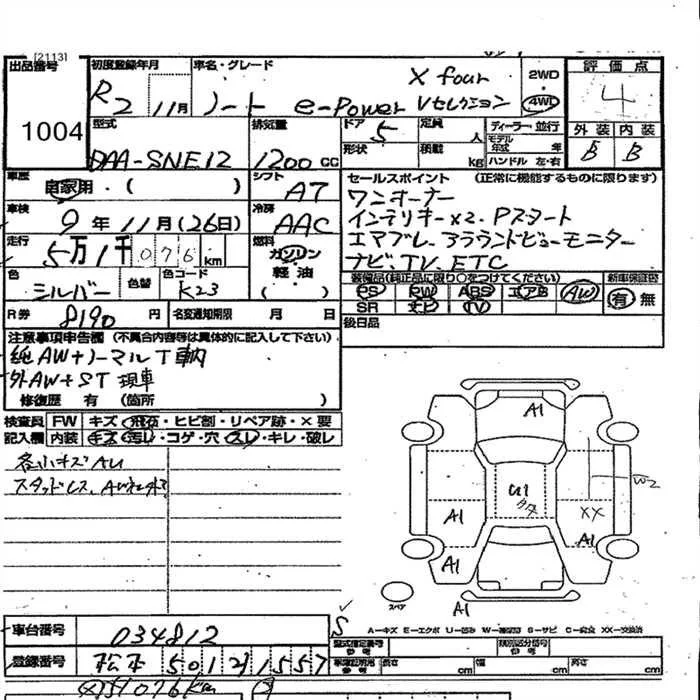 [2113]
出品番号 1004
初度登録年月 R2 11月
車名・グレード X four
ノート e-Power Vセレクション
2WD
4WD
評価点 4
外装 内装
B B
型式 DAA-SNE12
排気量 1200 CC
ドア 5
定員 人
形状
積載 kg
ディーラー・並行
モデル年式 年
ハンドル 左・右
車歴 自家用・( )
シフト AT
車検 9年11月(26日)
冷房 AAC
走行 5万1千076km
燃料 ガソリン
軽油
( )
色 シルバー
色替
色コード K23
R券 8190 円
名変通知期限 月 日
セールスポイント (正常に機能するものに限ります)
ワンオーナー
インテリキーx2. Pスタート
エマブレ. アラウンドビューモニター
ナビTV. ETC
装備品(純正品に限り○をつけてください)
新車保証書
PS PW ABS エアB AW
SR ナビ TV
有 無
後日品
注意事項申告欄 (不具合内容等は具体的に記入して下さい)
純AW+ノーマルT車内
外AW+ST現車
修復歴 有 (箇所 )
検査員記入欄
FW キズ・飛石・ヒビ割・リペア跡・×要
内装 キズ・汚レ・コゲ・穴・スレ・キレ・破レ
各小キズAU
スタッドレス、
A1
G1
A1
A1
XX
A1
W2
A1
スペア
S
A-キズ E-エクボ U-凹み W-補修跡 S-サビ C-腐食 XX-交換済
車台番号 034812
登録番号 松本 501 1557
型式指定番号 参考
類別区分番号 参考
車庫証明用 参考 長さ cm 幅 cm 高さ cm
51076km